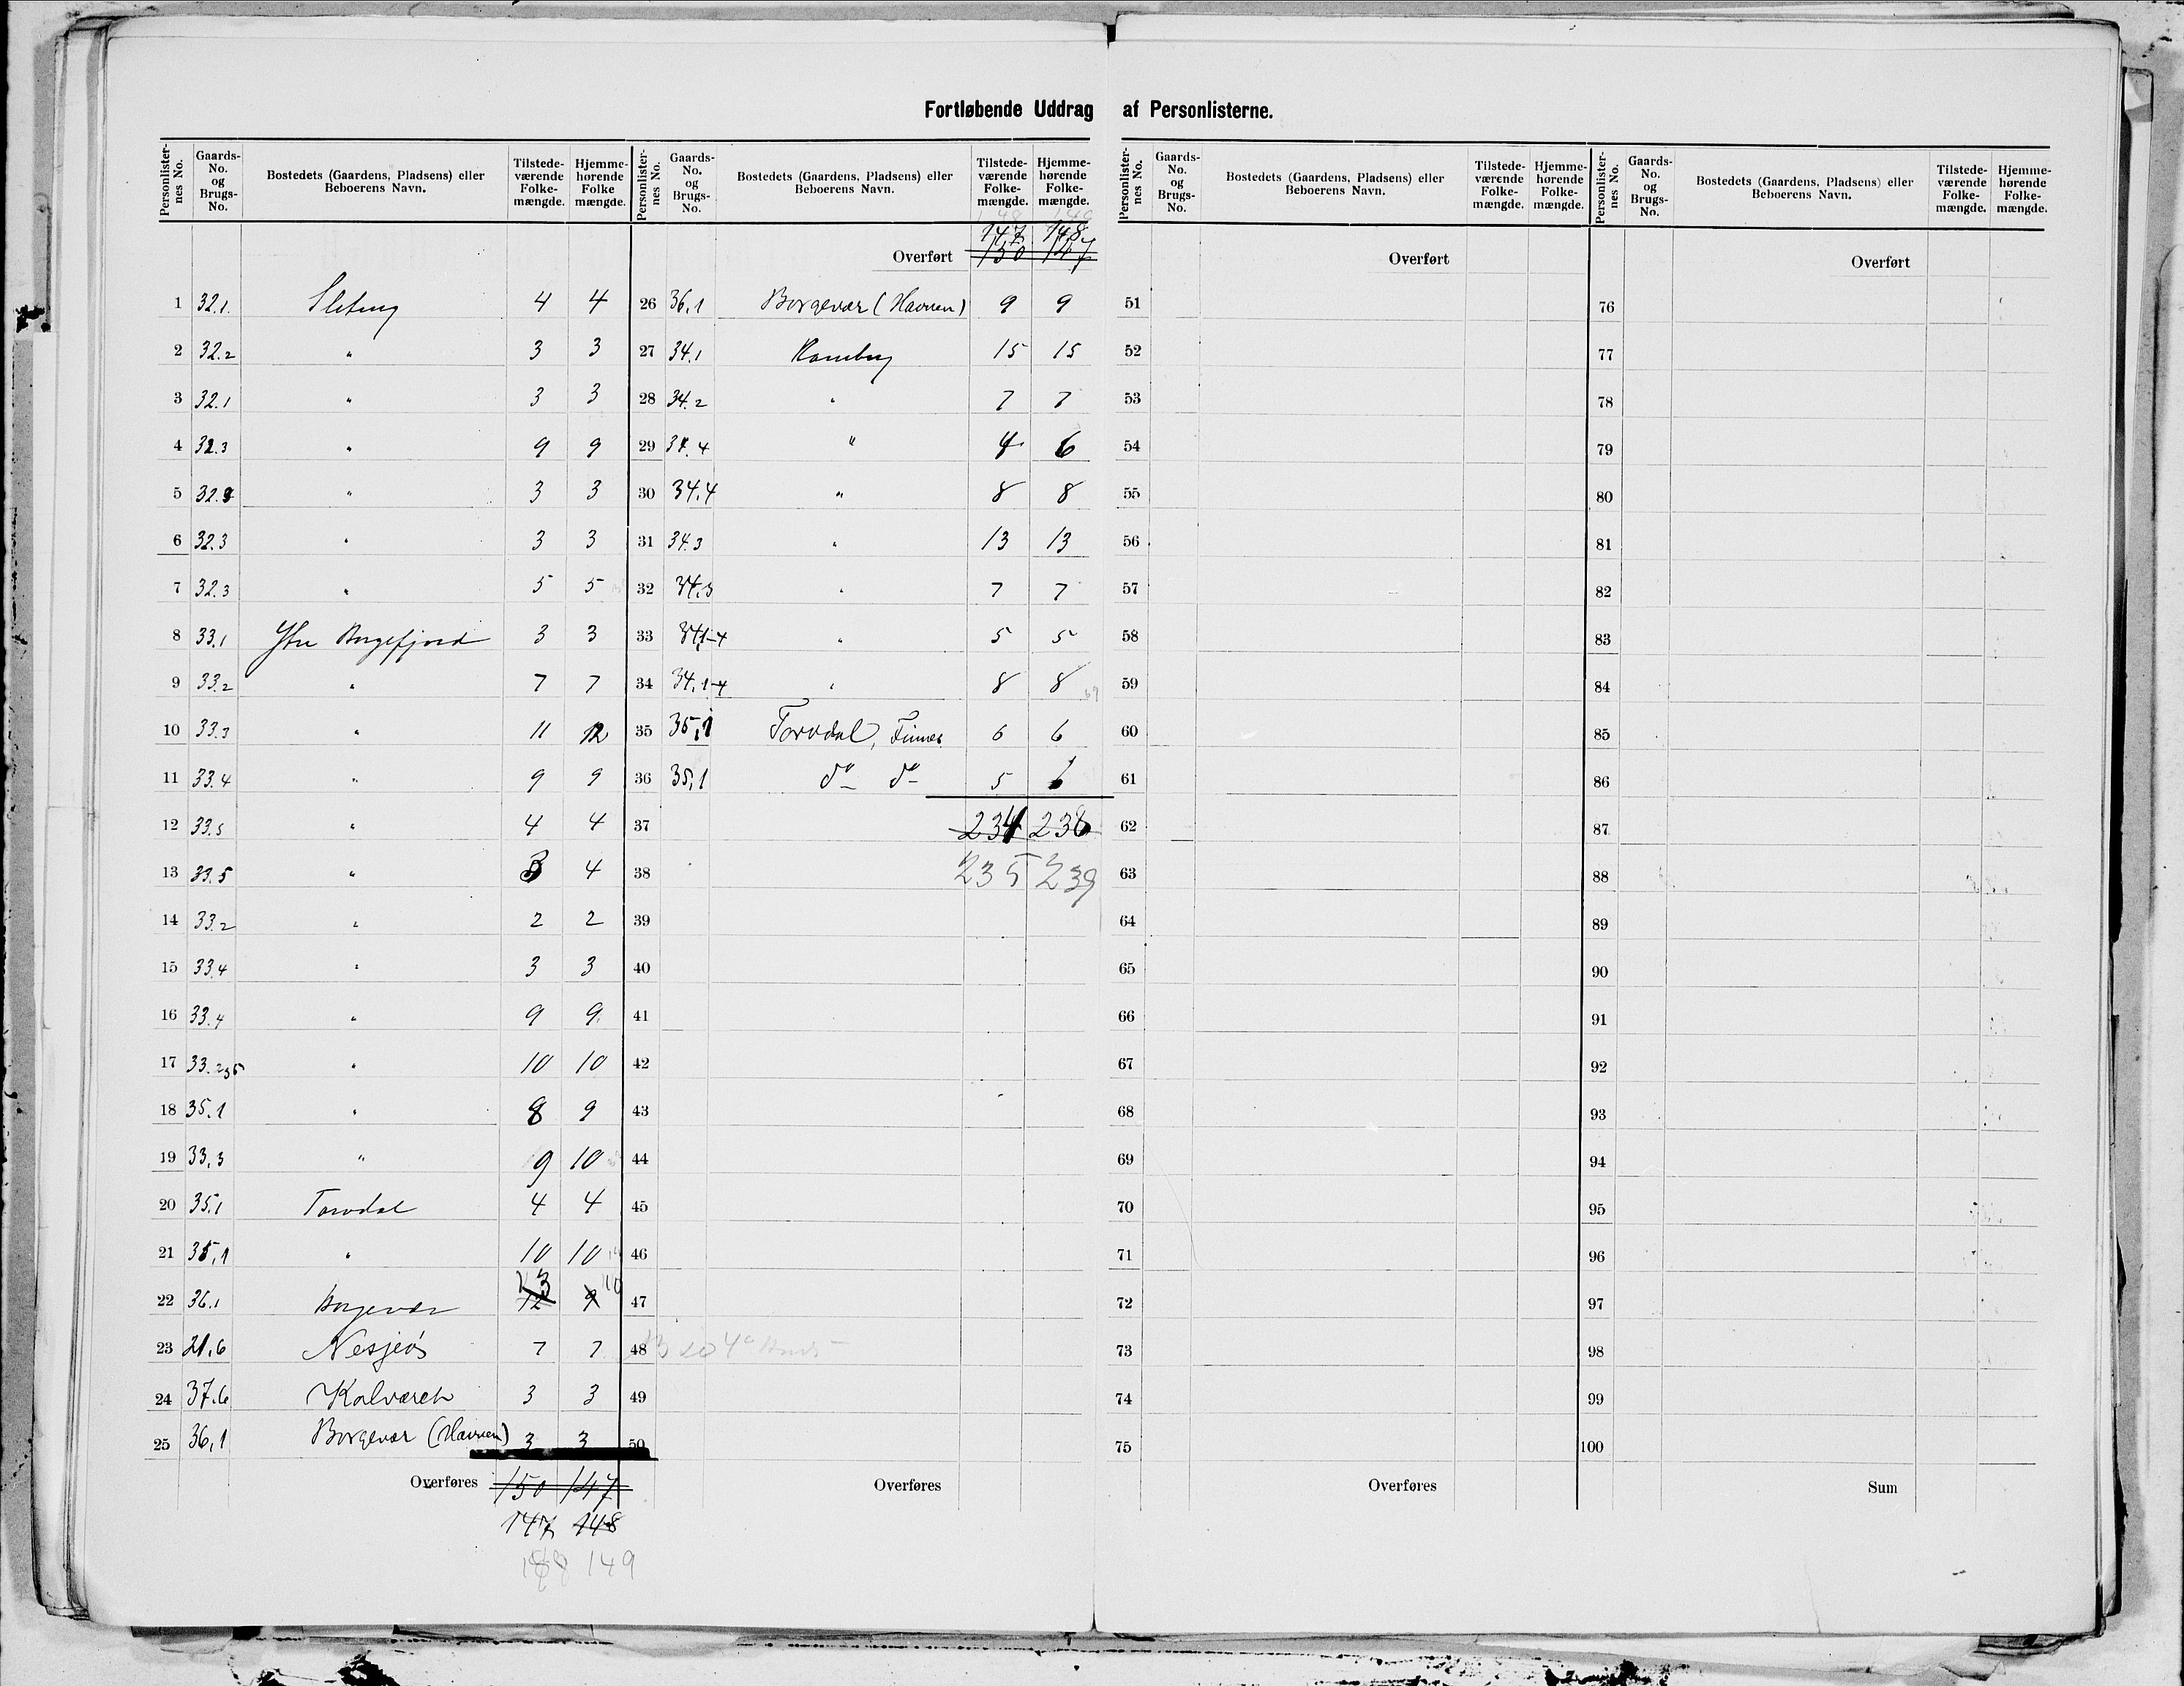 Fortløbende Uddrag af Personlisterne.
Personlisternes No. Gaards-No. og Brugs-No. Bostedets (Gaardens, Pladsens) eller Beboerens Navn. Tilstedeværende Folkemængde. Hjemmehørende Folkemængde.
Personlisternes No. Gaards-No. og Brugs-No. Bostedets (Gaardens, Pladsens) eller Beboerens Navn. Tilstedeværende Folkemængde. Hjemmehørende Folkemængde.
Personlisternes No. Gaards-No. og Brugs-No. Bostedets (Gaardens, Pladsens) eller Beboerens Navn. Tilstedeværende Folkemængde. Hjemmehørende Folkemængde.
Personlisternes No. Gaards-No. og Brugs-No. Bostedets (Gaardens, Pladsens) eller Beboerens Navn. Tilstedeværende Folkemængde. Hjemmehørende Folkemængde.
1 32.1. 4 4
2 32.2 " 3 3
3 32.1 " 3 3
4 32.3 " 9 9
5 32.3 " 3 3
6 32.3 " 3 3
7 32.3 " 5 5
8 33.1 Ytre Borgefjord 3 3
9 33.2 " 7 7
10 33.3 " 11 12
11 33.4 " 9 9
12 33.5 " 4 4
13 33.5 " 3 4
14 33.2 " 2 2
15 33.4 " 3 3
16 33.4 " 9 9
17 33. " 10 10
18 35.1 " 8 9
19 33.3 " 9 10
20 35.1 Torvdal 4 4
21 35.1 " 10 10
22 36.1 Borgevær 12 13 9 10
23 21.6 Nesjeøs 7 7
24 37.6 Kalværet 3 3
25 36.1 Borgevær (Havnen) 3 3
Overføres 150 147
147 148
148 149
148 149
147 148
Overført 150 147
26 36.1 Borgevær (Havnen) 9 9
27 34.1 Ramberg 15 15
28 34.2 " 7 7
29 34.4 " 4 6
30 34.4 " 8 8
31 34.3 " 13 13
32 34.3 " 7 7
33 34.1-4 " 5 5
34 34.1-4 " 8 8
35 35.1 Torvdal, Finnes 6 6
36 35.1 do do 5 6
37 234 238
38 235 239
39
40
41
42
43
44
45
46
47
48
49
50
Overføres
Overført
51
52
53
54
55
56
57
58
59
60
61
62
63
64
65
66
67
68
69
70
71
72
73
74
75
Overføres
Overført
76
77
78
79
80
81
82
83
84
85
86
87
88
89
90
91
92
93
94
95
96
97
98
99
100
Sum